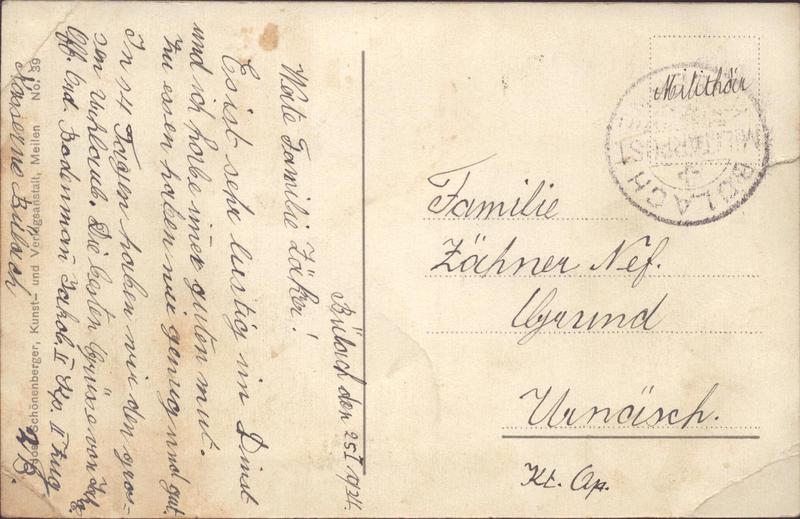 Bülach den 25 I 1934.
Werte Familie Zäher!
Es ist sehr lustig im Dinst
und ich habe imer guten mut.
Zu essen haben wir genug und gut.
In 14 Tagen haben wir den gros-
sen Urhlaub. Die besten Grüsse von
Off. Ord. Bodenman Jakob. II Kp. II Zug
Kaserne Bülach
Schönenberger, Kunst- und Verlagsanstalt, Meilen No. 39
Milithär
BÜLACH
MILITÄRPOST
Familie
Zähner Nef.
Grund
Urnäsch.
Kt. Ap.